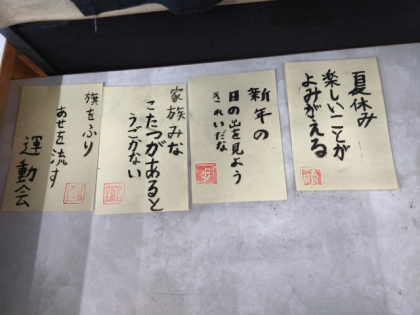 夏休み
楽しいことが
よみがえる
新年の
日の出を見よう
きれいだな
家族みな
こたつがあると
うごかない
旗をふり
あせを流す
運動会